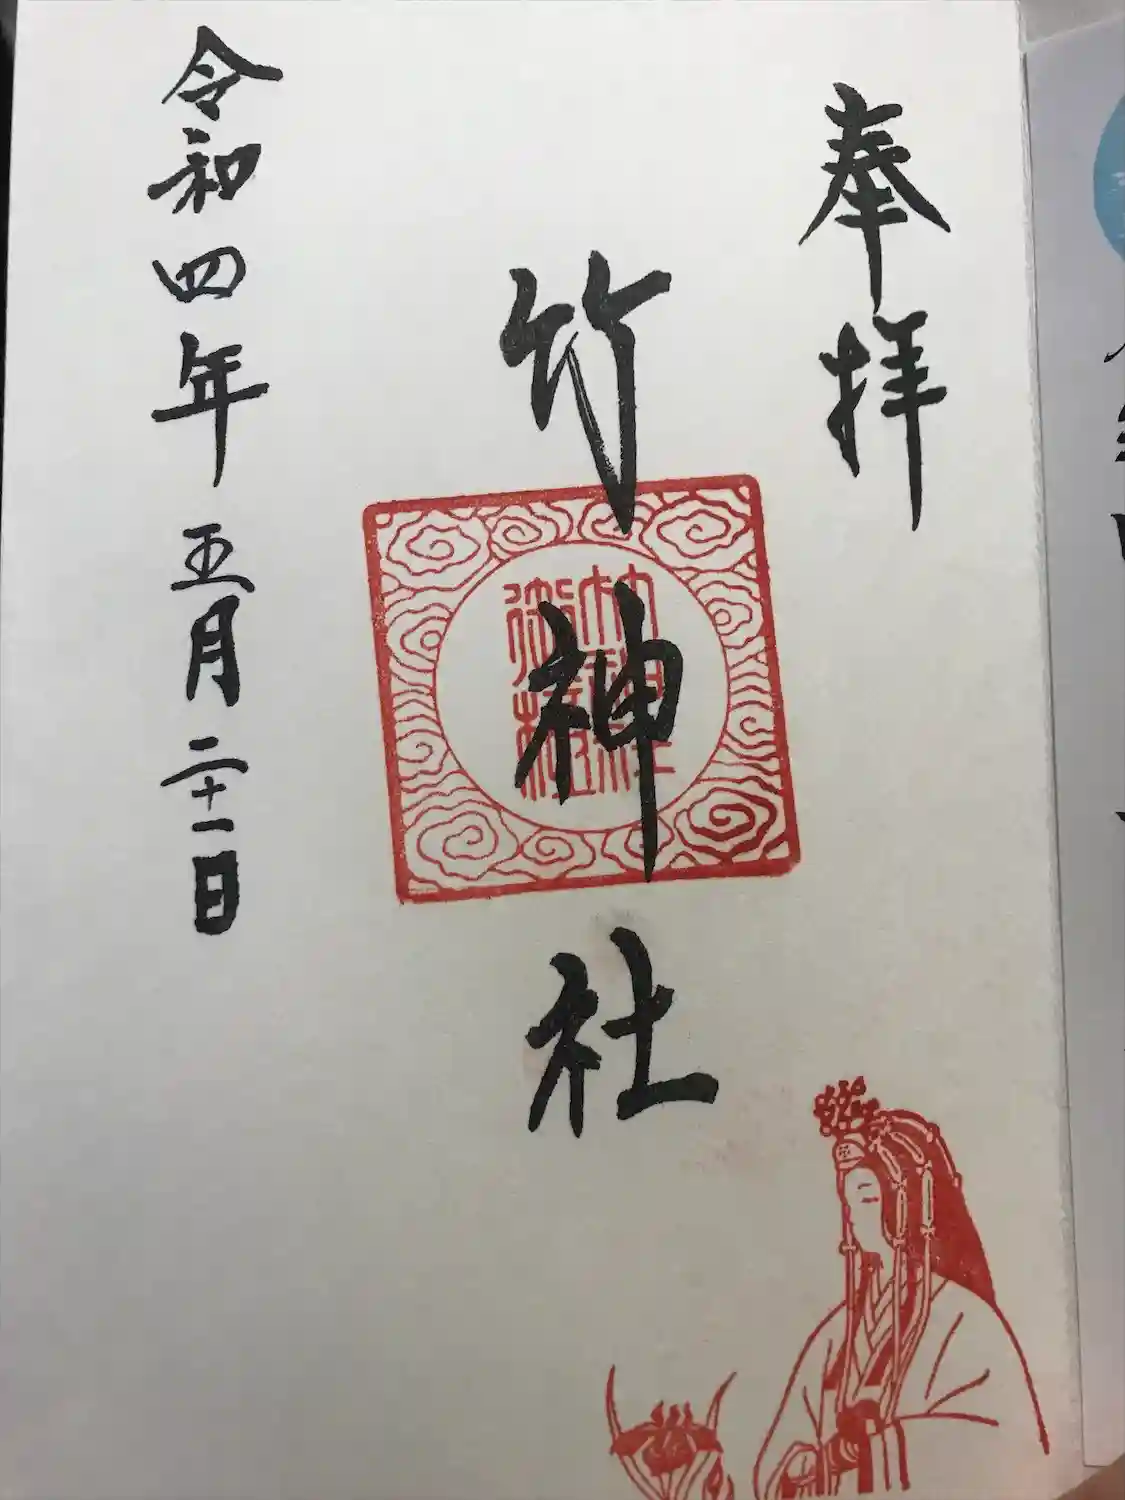 奉拝
竹神社
令和四年五月二十一日